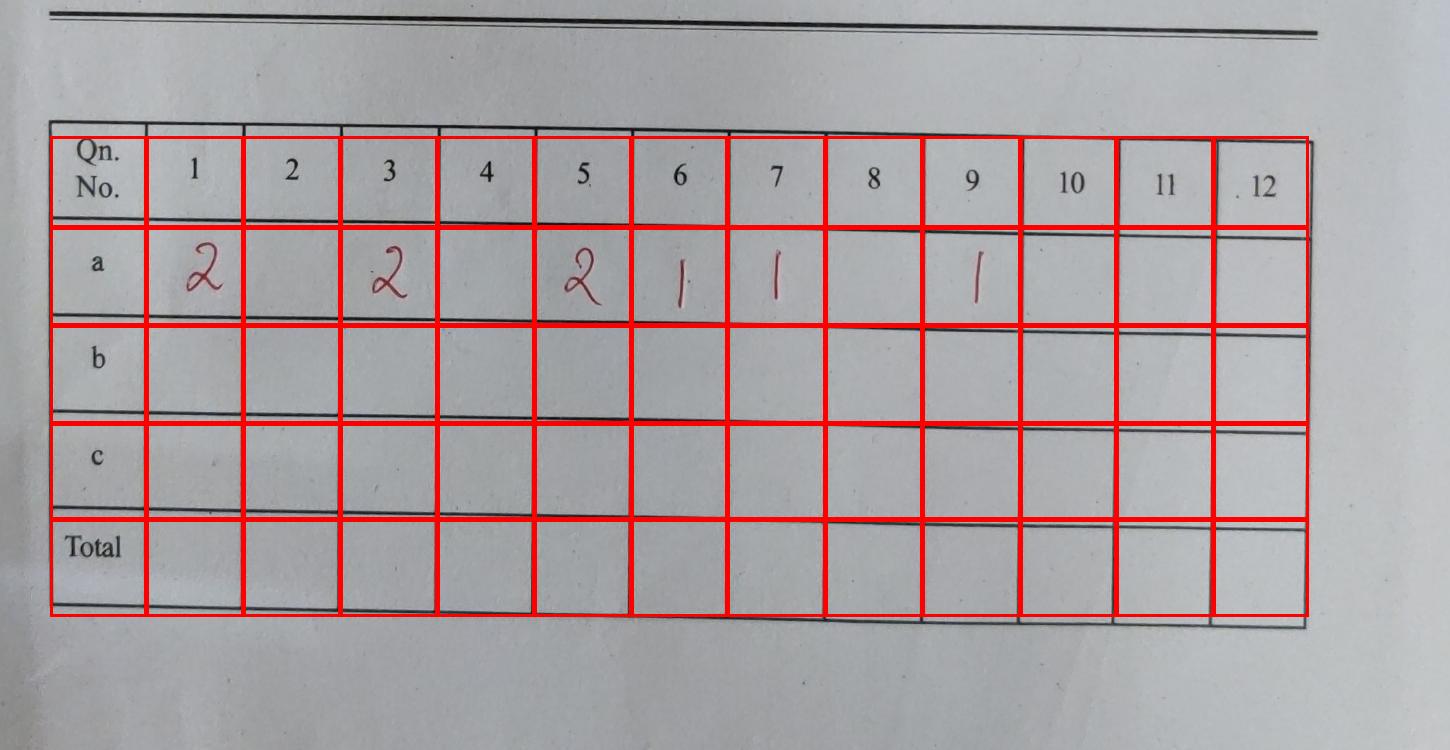 Qn. No. 1 2 3 4 5 6 7 8 9 10 11 12
a 2 2 2 1 1 1
b
c
Total